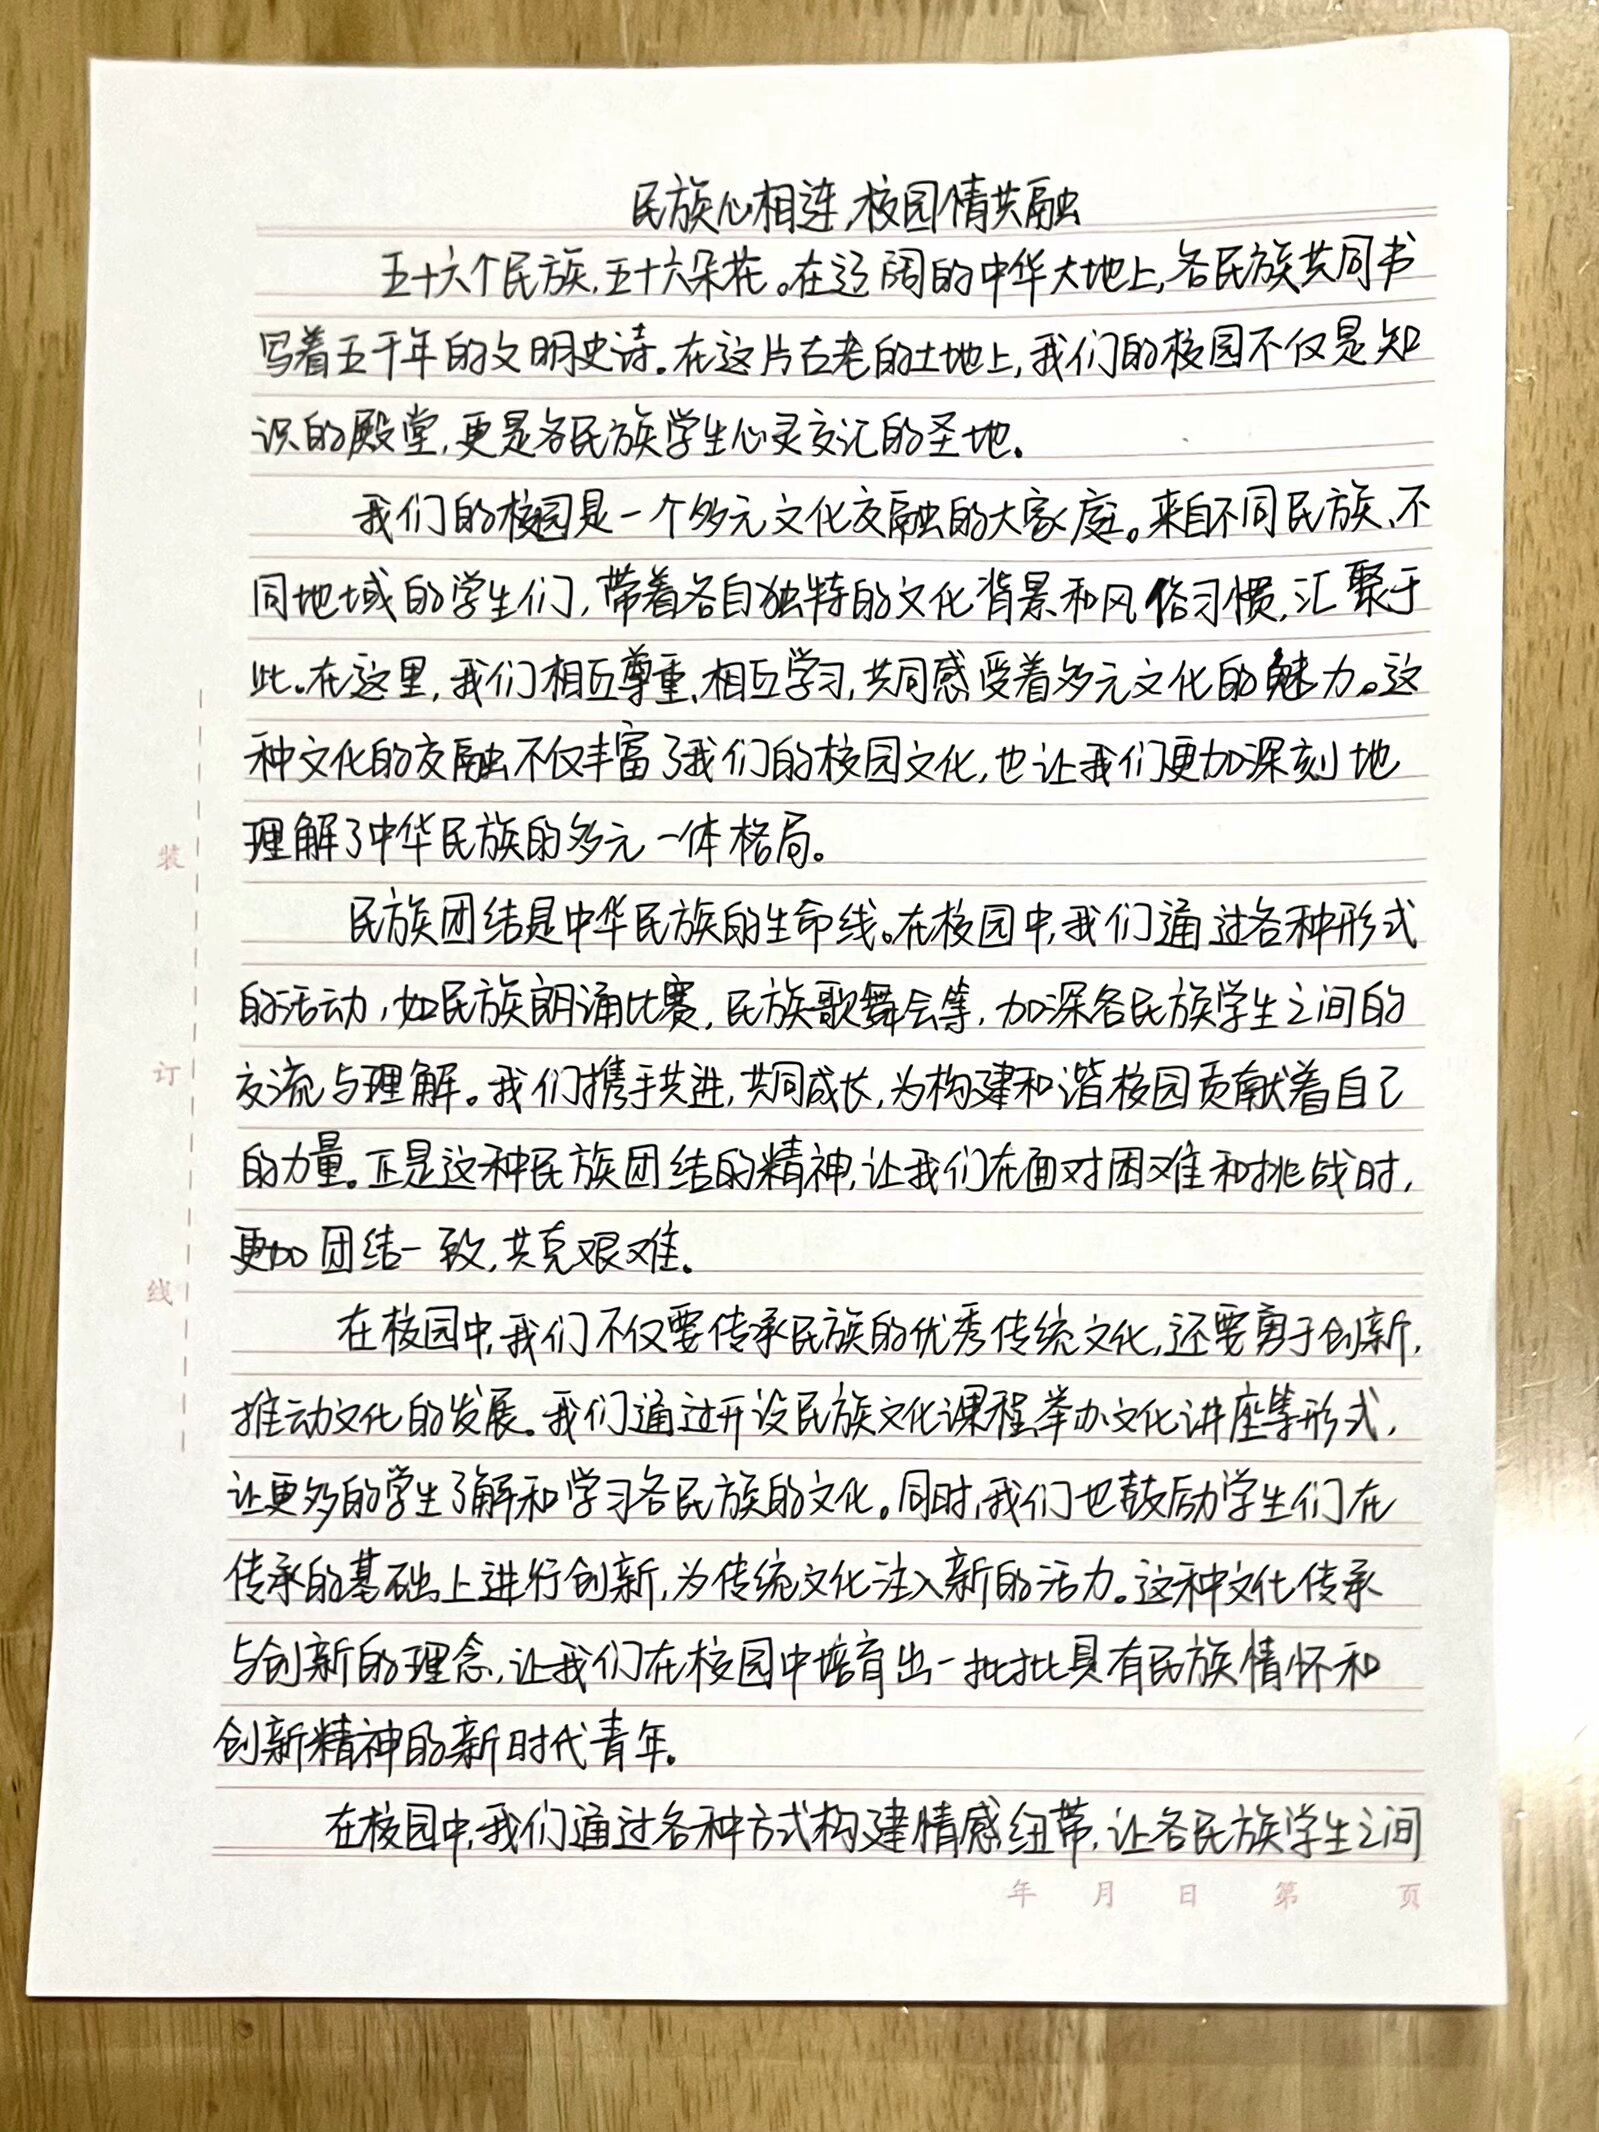 民族心相连,校园情共融
五十六个民族,五十六朵花。在辽阔的中华大地上,各民族共同书
写着五千年的文明史诗。在这片古老的土地上,我们的校园不仅是知
识的殿堂,更是各民族学生心灵交汇的圣地。
我们的校园是一个多元文化交融的大家庭。来自不同民族、不
同地域的学生们,带着各自独特的文化背景和风俗习惯,汇聚于
此。在这里,我们相互尊重、相互学习,共同感受着多元文化的魅力。这
种文化的交融不仅丰富了我们的校园文化,也让我们更加深刻地
理解了中华民族的多元一体格局。
民族团结是中华民族的生命线。在校园中,我们通过各种形式
的活动,如民族朗诵比赛,民族歌舞会等,加深各民族学生之间的
交流与理解。我们携手共进,共同成长,为构建和谐校园贡献着自己
的力量。正是这种民族团结的精神,让我们在面对困难和挑战时,
更加团结一致,共克艰难。
在校园中,我们不仅要传承民族的优秀传统文化,还要勇于创新,
推动文化的发展。我们通过开设民族文化课程,举办文化讲座等形式,
让更多的学生了解和学习各民族的文化。同时,我们也鼓励学生们在
传承的基础上进行创新,为传统文化注入新的活力。这种文化传承
与创新的理念,让我们在校园中培育出一批批具有民族情怀和
创新精神的新时代青年。
在校园中,我们通过各种方式构建情感纽带,让各民族学生之间
装
订
线
年 月 日 第 页